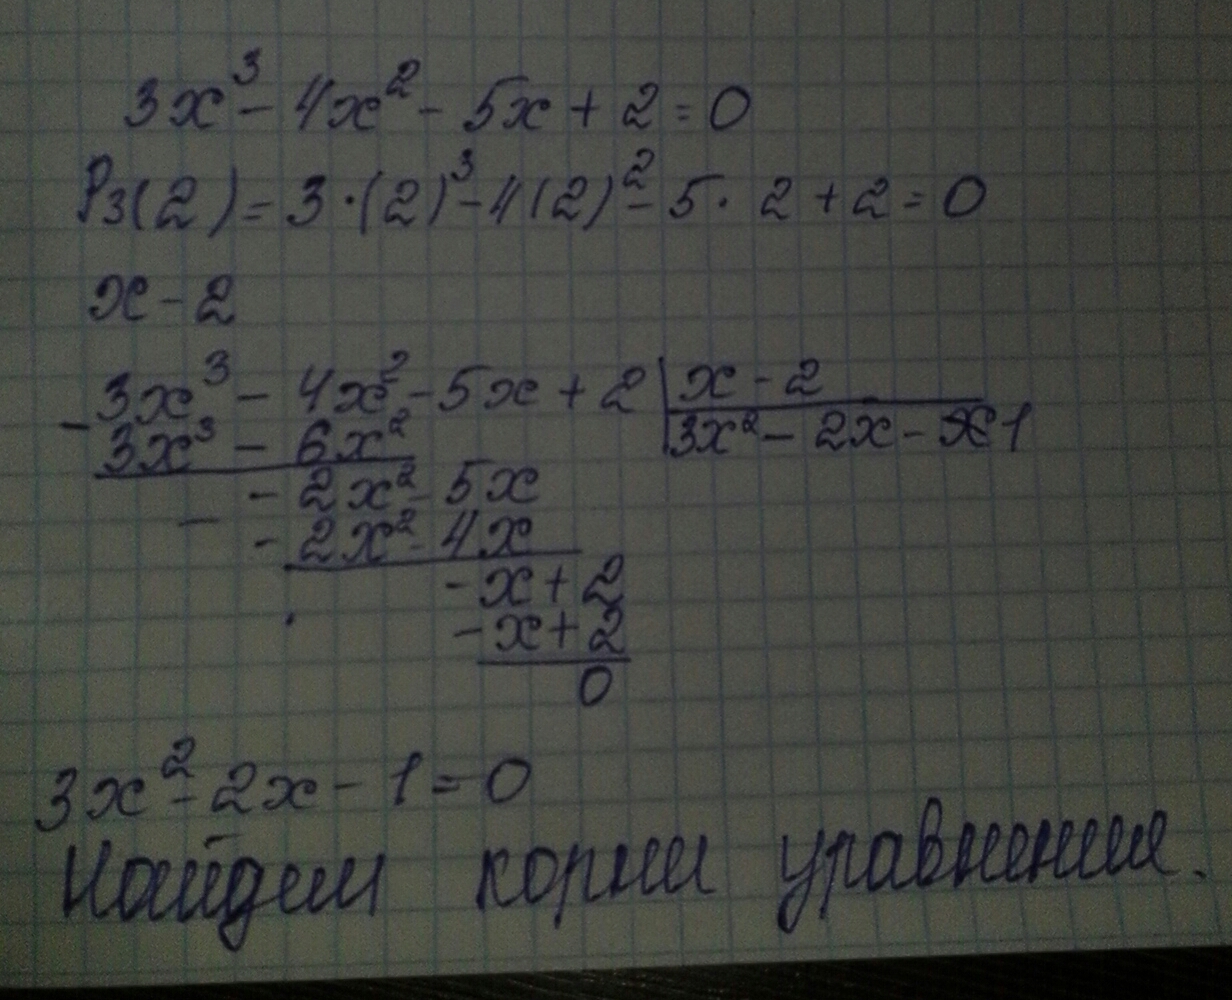 3x³ - 4x² - 5x + 2 = 0
P₃(2) = 3·(2)³ - 4(2)² - 5·2 + 2 = 0
x - 2
- 3x³ - 4x² - 5x + 2 | x - 2
3x³ - 6x² | 3x² - 2x - 1
- 2x² - 5x
- - 2x² - 4x
- x + 2
- x + 2
0
3x² - 2x - 1 = 0
Найдем корни уравнения.